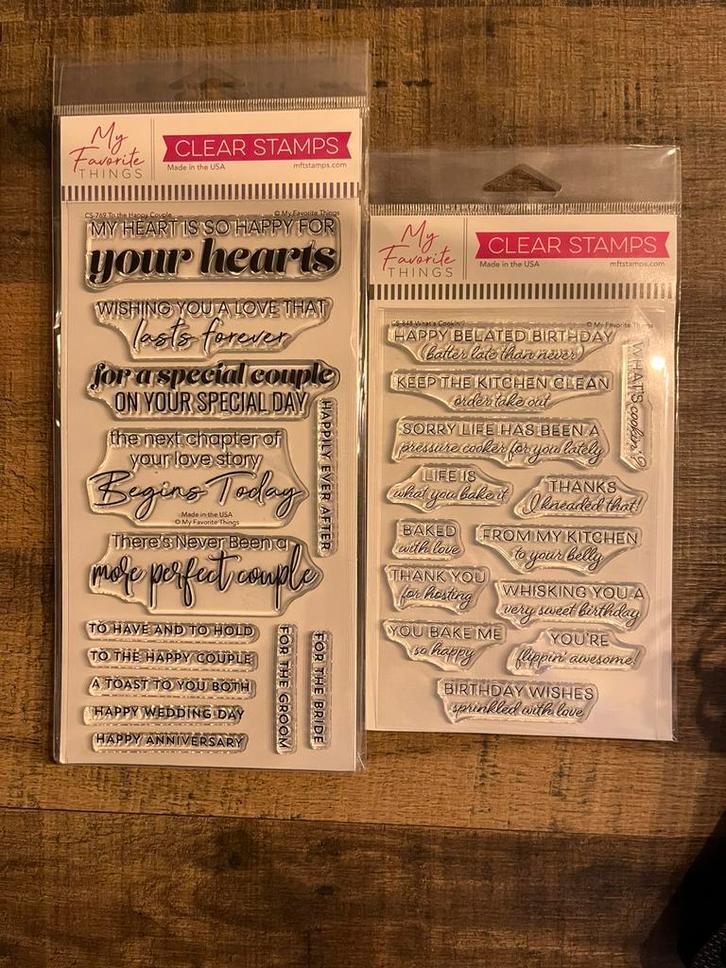 My
Favorite
THINGS
CLEAR STAMPS
Made in the USA
mftstamps.com
CS-769 To the Happy Couple
© My Favorite Things
MY HEART IS SO HAPPY FOR
your hearts
WISHING YOU A LOVE THAT
lasts forever
for a special couple
ON YOUR SPECIAL DAY
the next chapter of
your love story
Begins Today
Made in the USA
© My Favorite Things
HAPPILY EVER AFTER
There's Never Been a
more perfect couple
TO HAVE AND TO HOLD
TO THE HAPPY COUPLE
A TOAST TO YOU BOTH
HAPPY WEDDING DAY
HAPPY ANNIVERSARY
FOR THE GROOM
FOR THE BRIDE
My
Favorite
THINGS
CLEAR STAMPS
Made in the USA
mftstamps.com
What's Cookin'?
© My Favorite Things
HAPPY BELATED BIRTHDAY
(batter late than never)
WHAT'S cookin'?
KEEP THE KITCHEN CLEAN
order take out
SORRY LIFE HAS BEEN A
pressure cooker for you lately
LIFE IS
what you bake it
THANKS
I kneaded that!
BAKED
with love
FROM MY KITCHEN
to your belly
THANK YOU
for hosting
WHISKING YOU A
very sweet birthday
YOU BAKE ME
so happy
YOU'RE
flippin' awesome!
BIRTHDAY WISHES
sprinkled with love